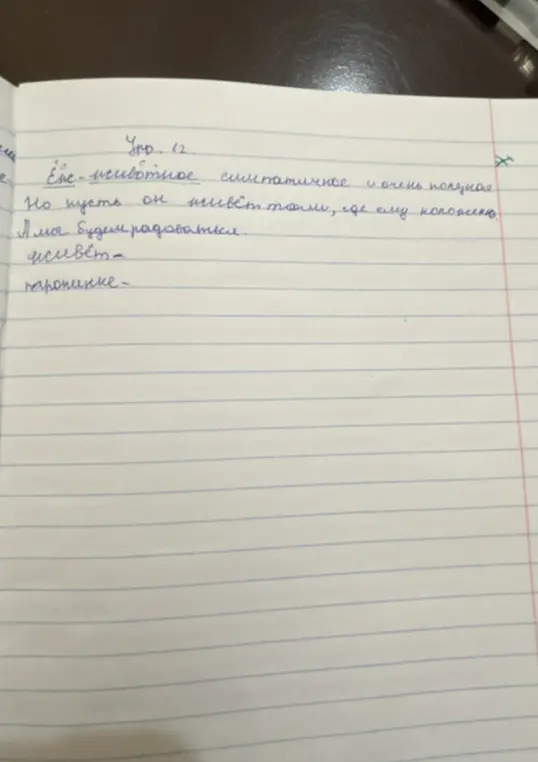 Упр. 12.
Ёж - животное симпатичное и очень полезное
Но пусть он живёт там, где ему положено.
А мы будем радоваться.
живёт -
тропинке -